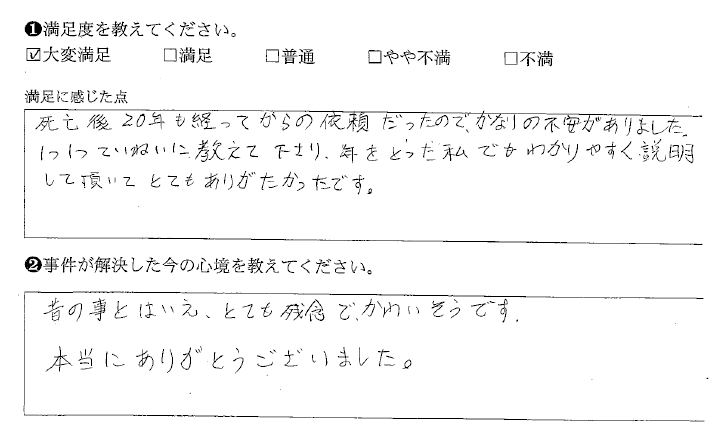 ❶満足度を教えてください。
☑大変満足 □満足 □普通 □やや不満 □不満
満足に感じた点
死亡後20年も経ってからの依頼だったので、かなりの不安がありました。
1つ1つていねいに教えて下さり、年をとった私でもわかりやすく説明
して頂いてとてもありがたかったです。
❷事件が解決した今の心境を教えてください。
昔の事とはいえ、とても残念で、かわいそうです。
本当にありがとうございました。